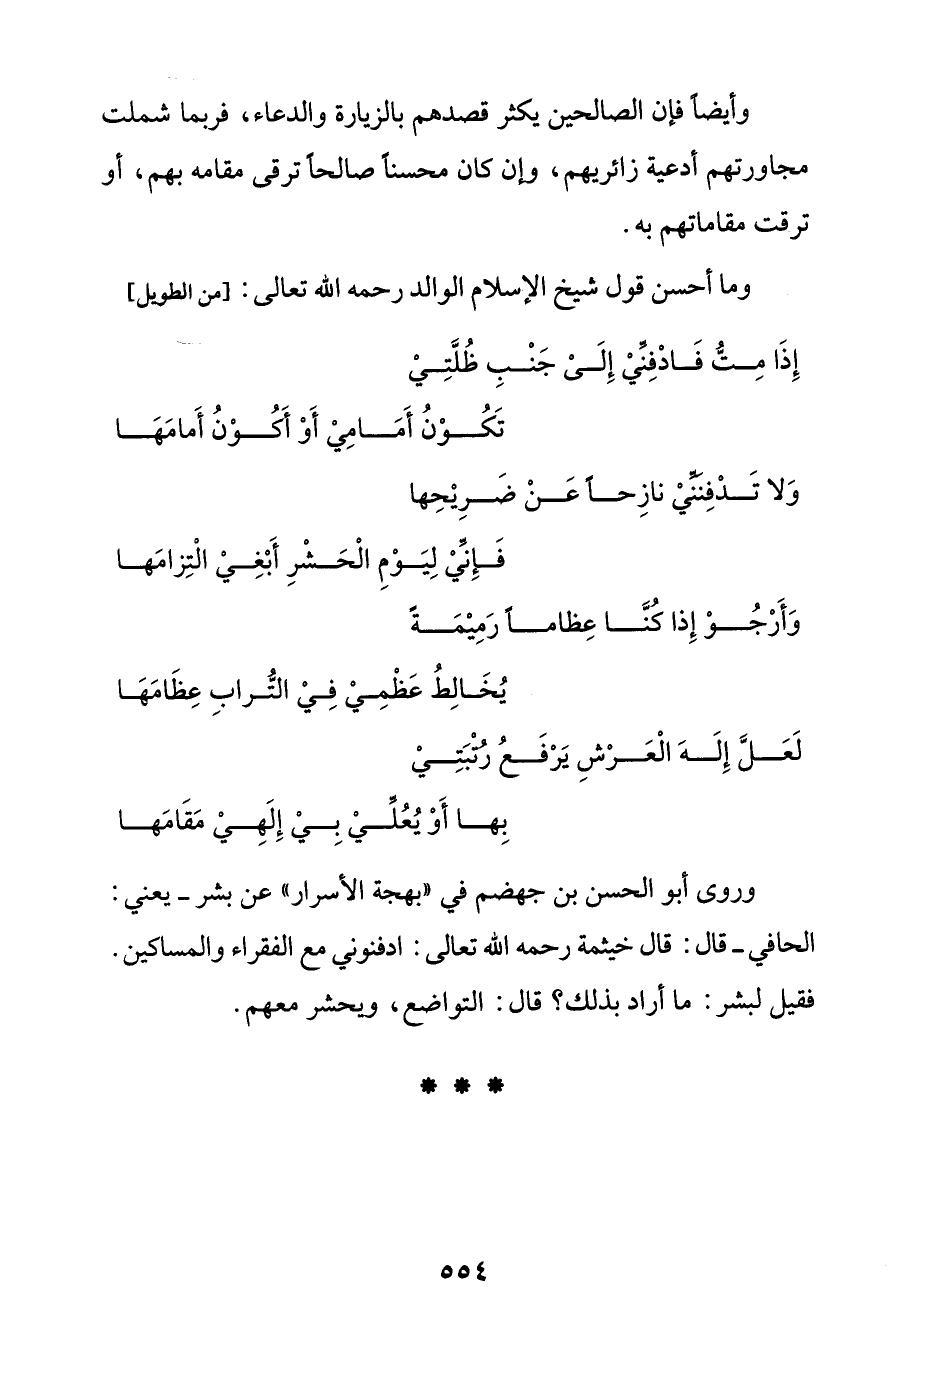 وأيضاً فإن الصالحين يكثر قصدهم بالزيارة والدعاء، فربما شملت
مجاورتهم أدعية زائريهم، وإن كان محسناً صالحاً ترقى مقامه بهم، أو
ترقت مقاماتهم به.
وما أحسن قول شيخ الإسلام الوالد رحمه الله تعالى: [من الطويل]
إِذَا مِـتُّ فَـادْفِنِّيْ إِلَـىْ جَنْـبِ ظُلَّتِـيْ
تَكُـوْنُ أَمَـامِيْ أَوْ أَكُـوْنُ أَمامَهَـا
وَلا تَـدْفِنَنِّيْ نازِحـاً عَـنْ ضَـرِيْحِها
فَـإِنِّيْ لِيَـوْمِ الْحَـشْرِ أَبْغِـيْ الْتِزامَهـا
وَأَرْجُـوْ إِذا كُنَّـا عِظامـاً رَمِيْمَـةً
يُخَـالِطُ عَظْمِـيْ فِـيْ التُّـرابِ عِظَامَهَـا
لَعَـلَّ إِلَـهَ الْعَـرْشِ يَرْفَـعُ رُتْبَتِـيْ
بِهـا أَوْ يُعُلِّـيْ بِـيْ إِلَهِـيْ مَقَامَهـا
وروى أبو الحسن بن جهضم في «بهجة الأسرار» عن بشر ـ يعني:
الحافي ـ قال: قال خيثمة رحمه الله تعالى: ادفنوني مع الفقراء والمساكين.
فقيل لبشر: ما أراد بذلك؟ قال: التواضع، ويحشر معهم.
* * *
٥٥٤